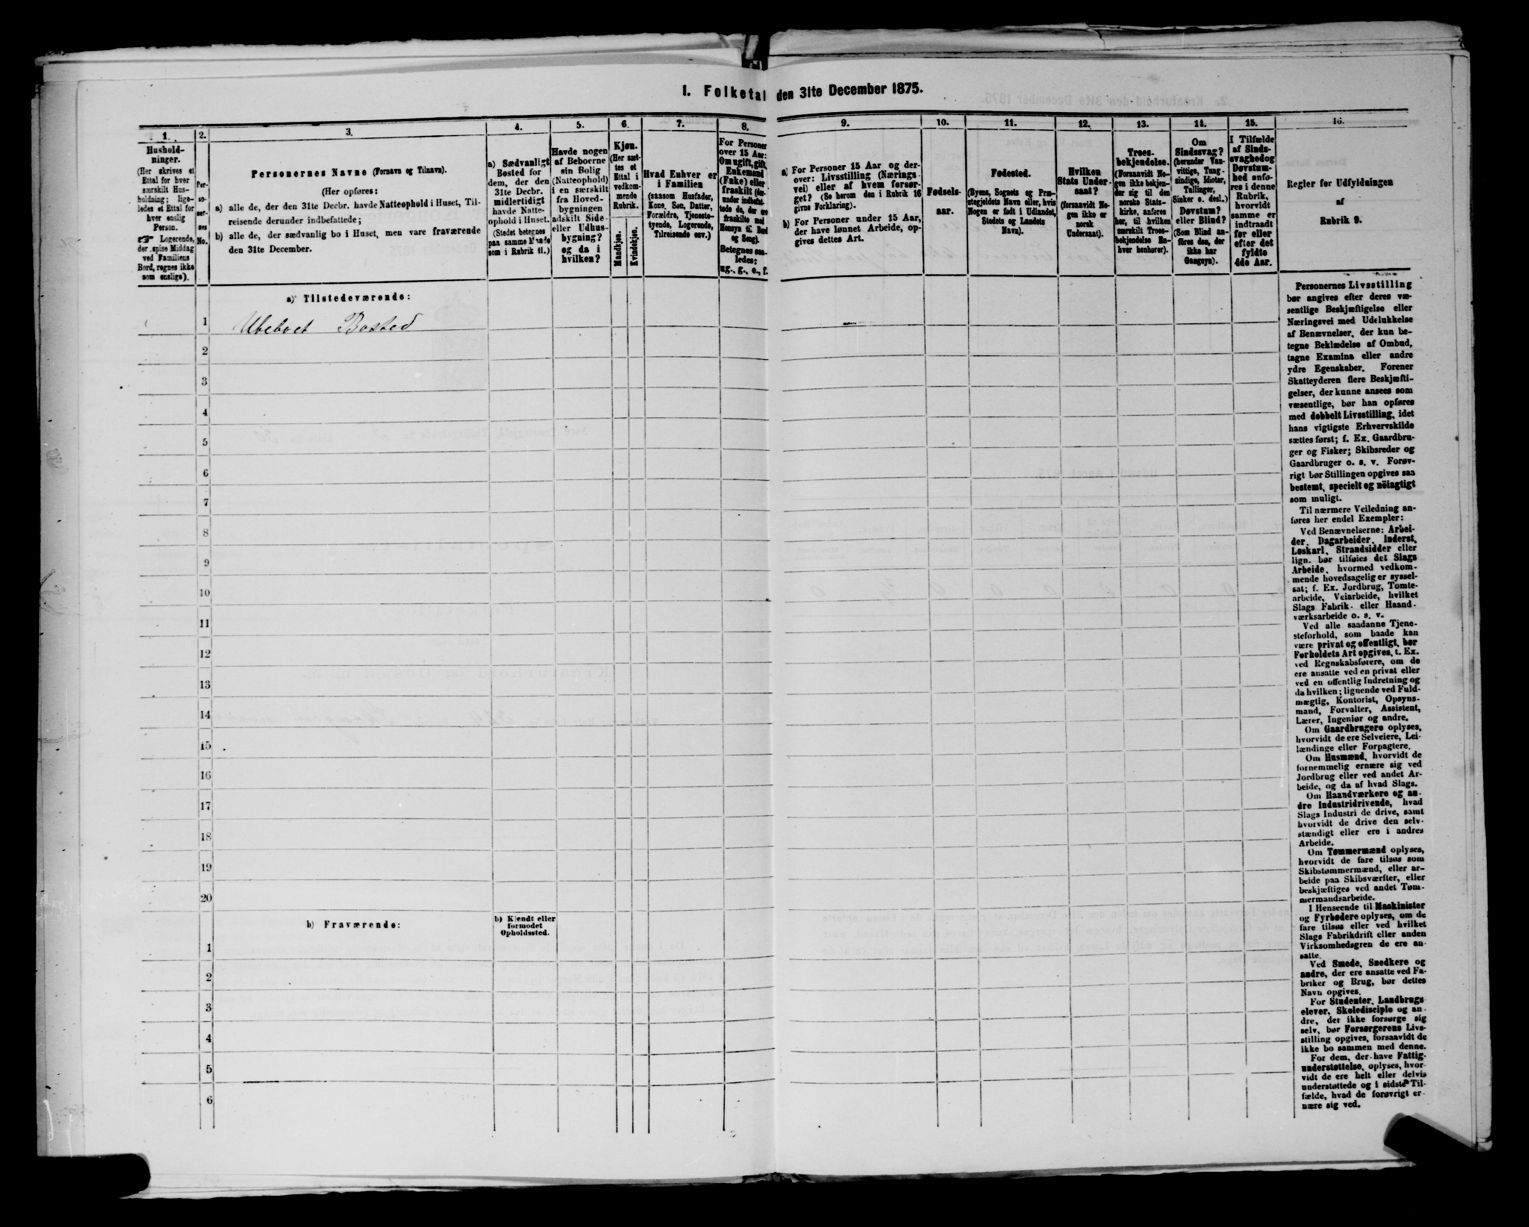 I. Folketal den 31te December 1875.
1.
Hushold-
ninger.
(Her skrives et
Ettal for hver
særskilt Hus-
holdning; lige-
ledes et Ettal for
hver enslig
Person.
☞ Logerende,
der spise Middag
ved Familiens
Bord, regnes ikke
som enslige).
2.
Per-
so-
ner-
nes
No.
3.
Personernes Navne (Fornavn og Tilnavn).
(Her opføres:
a) alle de, der den 31te Decbr. havde Natteophold i Huset, Til-
reisende derunder indbefattede;
b) alle de, der sædvanlig bo i Huset, men vare fraværende
den 31te December.
4.
a) Sædvanligt
Bosted for
dem, der den
31te Decbr.
midlertidigt
havde Natte-
ophold i Huset.
(Stedet betegnes
paa samme Maade
som i Rubrik 11.)
5.
Havde nogen
af Beboerne
sin Bolig
(Natteophold)
i en særskilt
fra Hoved-
bygningen
adskilt Side-
eller Udhus-
bygning?
og da i
hvilken?
6.
Kjøn.
(Her sæt-
tes et
Ettal i
vedkom-
mende
Rubrik.
Mandkjøn.
Kvindekjøn.
7.
Hvad Enhver er
i Familien
(saasom Husfader,
Kone, Søn, Datter,
Forældre, Tjeneste-
tyende, Logerende,
Tilreisende osv.)
8.
For Personer
over 15 Aar:
Om ugift, gift,
Enkemand
(Enke) eller
fraskilt (der-
under indbefat-
tede de, der ere
fraskilte med
Hensyn til Bord
og Seng).
Betegnes saa-
ledes:
ug., g., e., f.
9.
a) For Personer 15 Aar og der-
over: Livsstilling (Nærings-
vei) eller af hvem forsør-
get? (Se herom den i Rubrik 16
givne Forklaring).
b) For Personer under 15 Aar,
der have lønnet Arbeide, op-
gives dettes Art.
10.
Fødsels-
aar.
11.
Fødested.
(Byens, Sognets og Præ-
stegjeldets Navn eller, hvis
Nogen er født i Udlandet,
Stedets og Landets
Navn).
12.
Hvilken
Stats Under-
saat?
(forsaavidt No-
gen ikke er
norsk
Undersaat).
13.
Troes-
bekjendelse.
(Forsaavidt No-
gen ikke bekjen-
der sig til den
norske Stats-
kirke, anføres
her, til hvilken
særskilt Troes-
bekjendelse En-
hver henhører).
14.
Om
Sindssvag?
(herunder Van-
vittige, Tung-
sindige, Idioter,
Tullinger,
Sinker o. desl.)
Døvstum?
eller Blind?
(Som Blind an-
føres den, der
ikke har
Gangsyn).
15.
I Tilfælde
af Sinds-
svaghedog
Døvstum-
hed anfø-
res i denne
Rubrik,
hvorvidt
samme er
indtraadt
før eller
efter det
fyldte
4de Aar.
16.
Regler for Udfyldningen
af
Rubrik 9.
a) Tilstedeværende:
1
Ubeboet Bosted
2
3
4
5
6
7
8
9
10
11
12
13
14
15
16
17
18
19
20
b) Fraværende:
b) Kjendt eller
formodet
Opholdssted.
1
2
3
4
5
6
Personernes Livsstilling
bør angives efter deres væ-
sentlige Beskjæftigelse eller
Næringsvei med Udelukkelse
af Benævnelser, der kun be-
tegne Beklædelse af Ombud,
tagne Examina eller andre
ydre Egenskaber. Forener
Skatteyderen flere Beskjæfti-
gelser, der kunne ansees som
væsentlige, bør han opføres
med dobbelt Livsstilling, idet
hans vigtigste Erhvervskilde
sættes først; f. Ex. Gaardbru-
ger og Fisker; Skibsreder og
Gaardbruger o. s. v. Forøv-
rigt bør Stillingen opgives saa
bestemt, specielt og nöiagtigt
som muligt.
Til nærmere Veiledning an-
føres her endel Exempler:
Ved Benævnelserne: Arbei-
der, Dagarbeider, Inderst,
Løskarl, Strandsidder eller
lign. bør tilføies det Slags
Arbeide, hvormed vedkom-
mende hovedsagelig er syssel-
sat; f. Ex. Jordbrug, Tomte-
arbeide, Veiarbeide, hvilket
Slags Fabrik- eller Haand-
værksarbeide o. s. v.
Ved alle saadanne Tjene-
steforhold, som baade kan
være privat og offentligt, bør
Forholdets Art opgives, t. Ex.
ved Regnskabsførere, om de
ere ansatte ved en privat eller
ved en offentlig Indretning og
da hvilken; lignende ved Fuld-
mægtig, Kontorist, Opsyns-
mand, Forvalter, Assistent,
Lærer, Ingeniør og andre.
Om Gaardbrugere oplyses,
hvorvidt de ere Selveiere, Lei-
lændinge eller Forpagtere.
Om Husmænd, hvorvidt de
fornemmelig ernære sig ved
Jordbrug eller ved andet Ar-
beide, og da af hvad Slags.
Om Haandværkere og an-
dre Industridrivende, hvad
Slags Industri de drive, samt
hvorvidt de drive den selv-
stændigt eller ere i andres
Arbeide.
Om Tømmermænd oplyses,
hvorvidt de fare tilsøs som
Skibstømmermænd, eller ar-
beide paa Skibsværfter, eller
beskjæftiges ved andet Tøm-
mermandsarbeide.
I Henseende til Maskinister
og Fyrbødere oplyses, om de
fare tilsøs eller ved hvilket
Slags Fabrikdrift eller anden
Virksomhedsgren de ere an-
satte.
Ved Smede, Snedkere og
andre, der ere ansatte ved Fa-
briker og Brug, bør dettes
Navn opgives.
For Studenter, Landbrugs-
elever, Skoledisciple og an-
dre, der ikke forsørge sig
selv, bør Forsørgerens Livs-
stilling opgives, forsaavidt de
ikke bo sammen med denne.
For dem, der have Fattig-
understøttelse, oplyses, hvor-
vidt de ere helt eller delvis
understøttede og i sidste Til-
fælde, hvad de forøvrigt er-
nære sig ved.